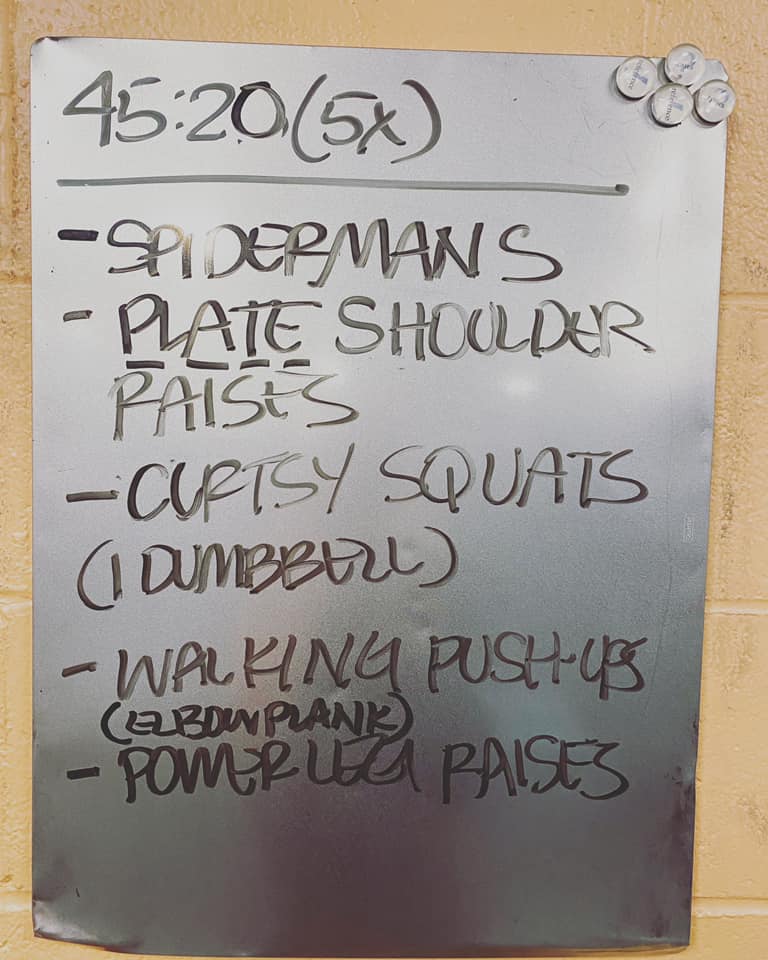 45:20(5X)
- SPIDERMANS
- PLATE SHOULDER
RAISES
- CURTSY SQUATS
(1 DUMBBELL)
- WALKING PUSH-UPS
(ELBOW PLANK)
- POWER LEG RAISES